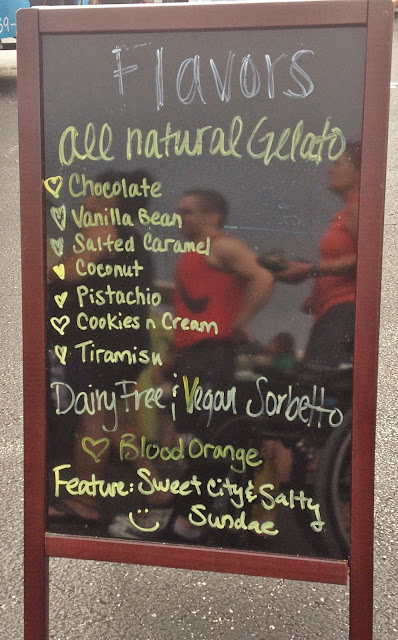 39-
Flavors
all natural Gelato
Chocolate
Vanilla Bean
Salted Caramel
Coconut
Pistachio
Cookies n Cream
Tiramisu
Dairy Free & Vegan Sorbetto
Blood Orange
Feature: Sweet City & Salty
Sundae